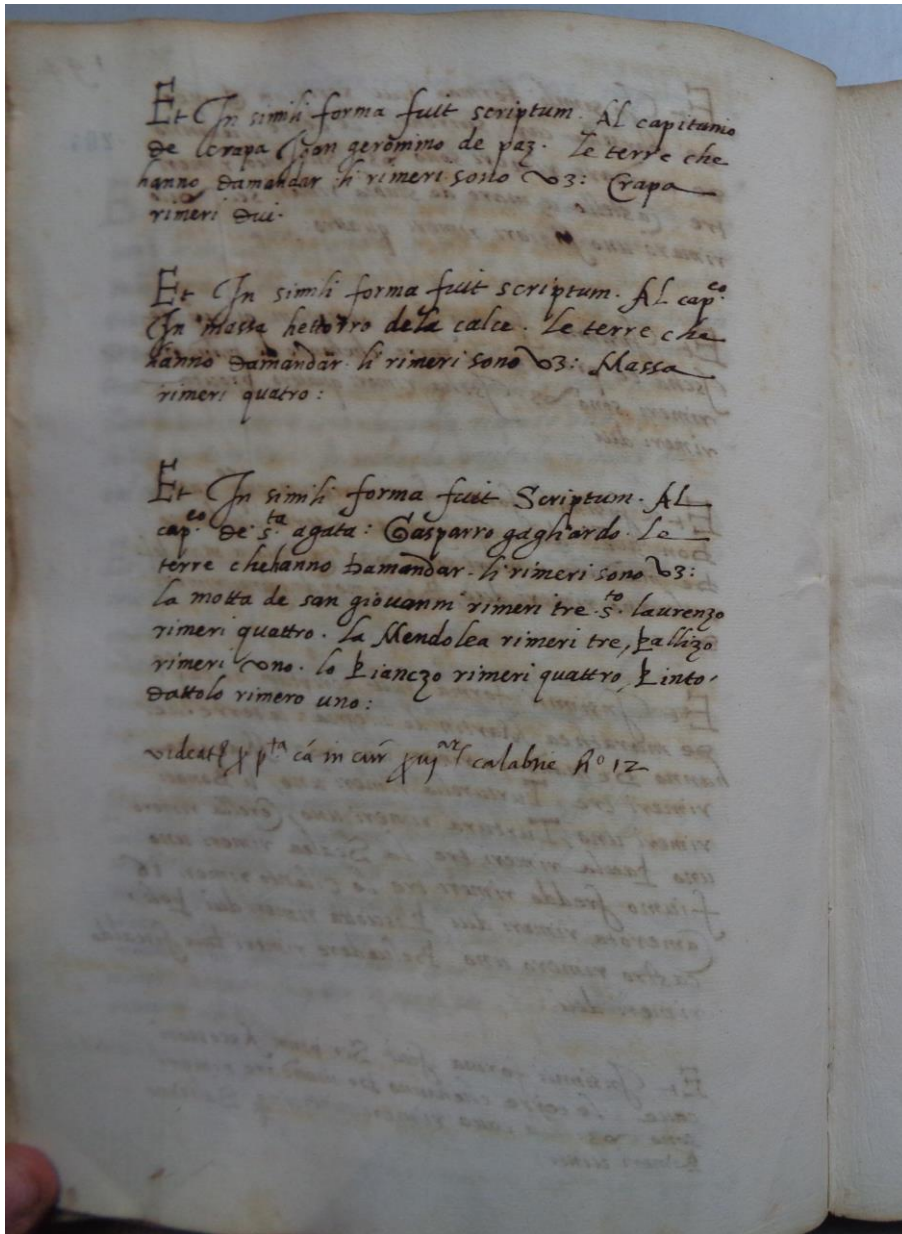 Et In simili forma fuit scriptum. Al capitanio
de crapa Joan geronimo de paz. Le terre che
hanno damandar li rimeri sono v3: Crapa
rimeri dui.
Et In simili forma fuit scriptum. Al cap.eo
In massa hettorro dela calce. Le terre che
hanno damandar li rimeri sono v3: Massa
rimeri quatro:
Et In simili forma fuit Scriptum. Al
cap.eo de s.ta agata: Gasparro gagliardo. Le
terre chehanno damandar. li rimeri sono v3:
la motta de san giovanni rimeri tre. s.to laurenzo
rimeri quattro. la Mendolea rimeri tre, Pallizo
rimeri vno. lo Pianczo rimeri quattro, Pinto,
dattolo rimero uno:
in calabrie no 12